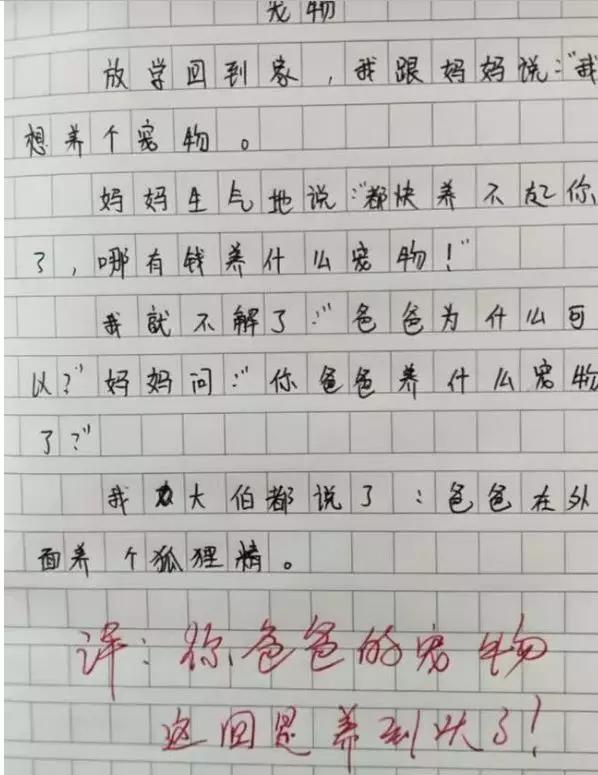 宠物
放学回到家，我跟妈妈说："我
想养个宠物。
妈妈生气地说："都快养不起你
了，哪有钱养什么宠物！"
我就不解了："爸爸为什么可
以？"妈妈问："你爸爸养什么宠物
了？"
我大伯都说了：爸爸在外
面养个狐狸精。
评：你爸爸的宠物
这回是养到头了！